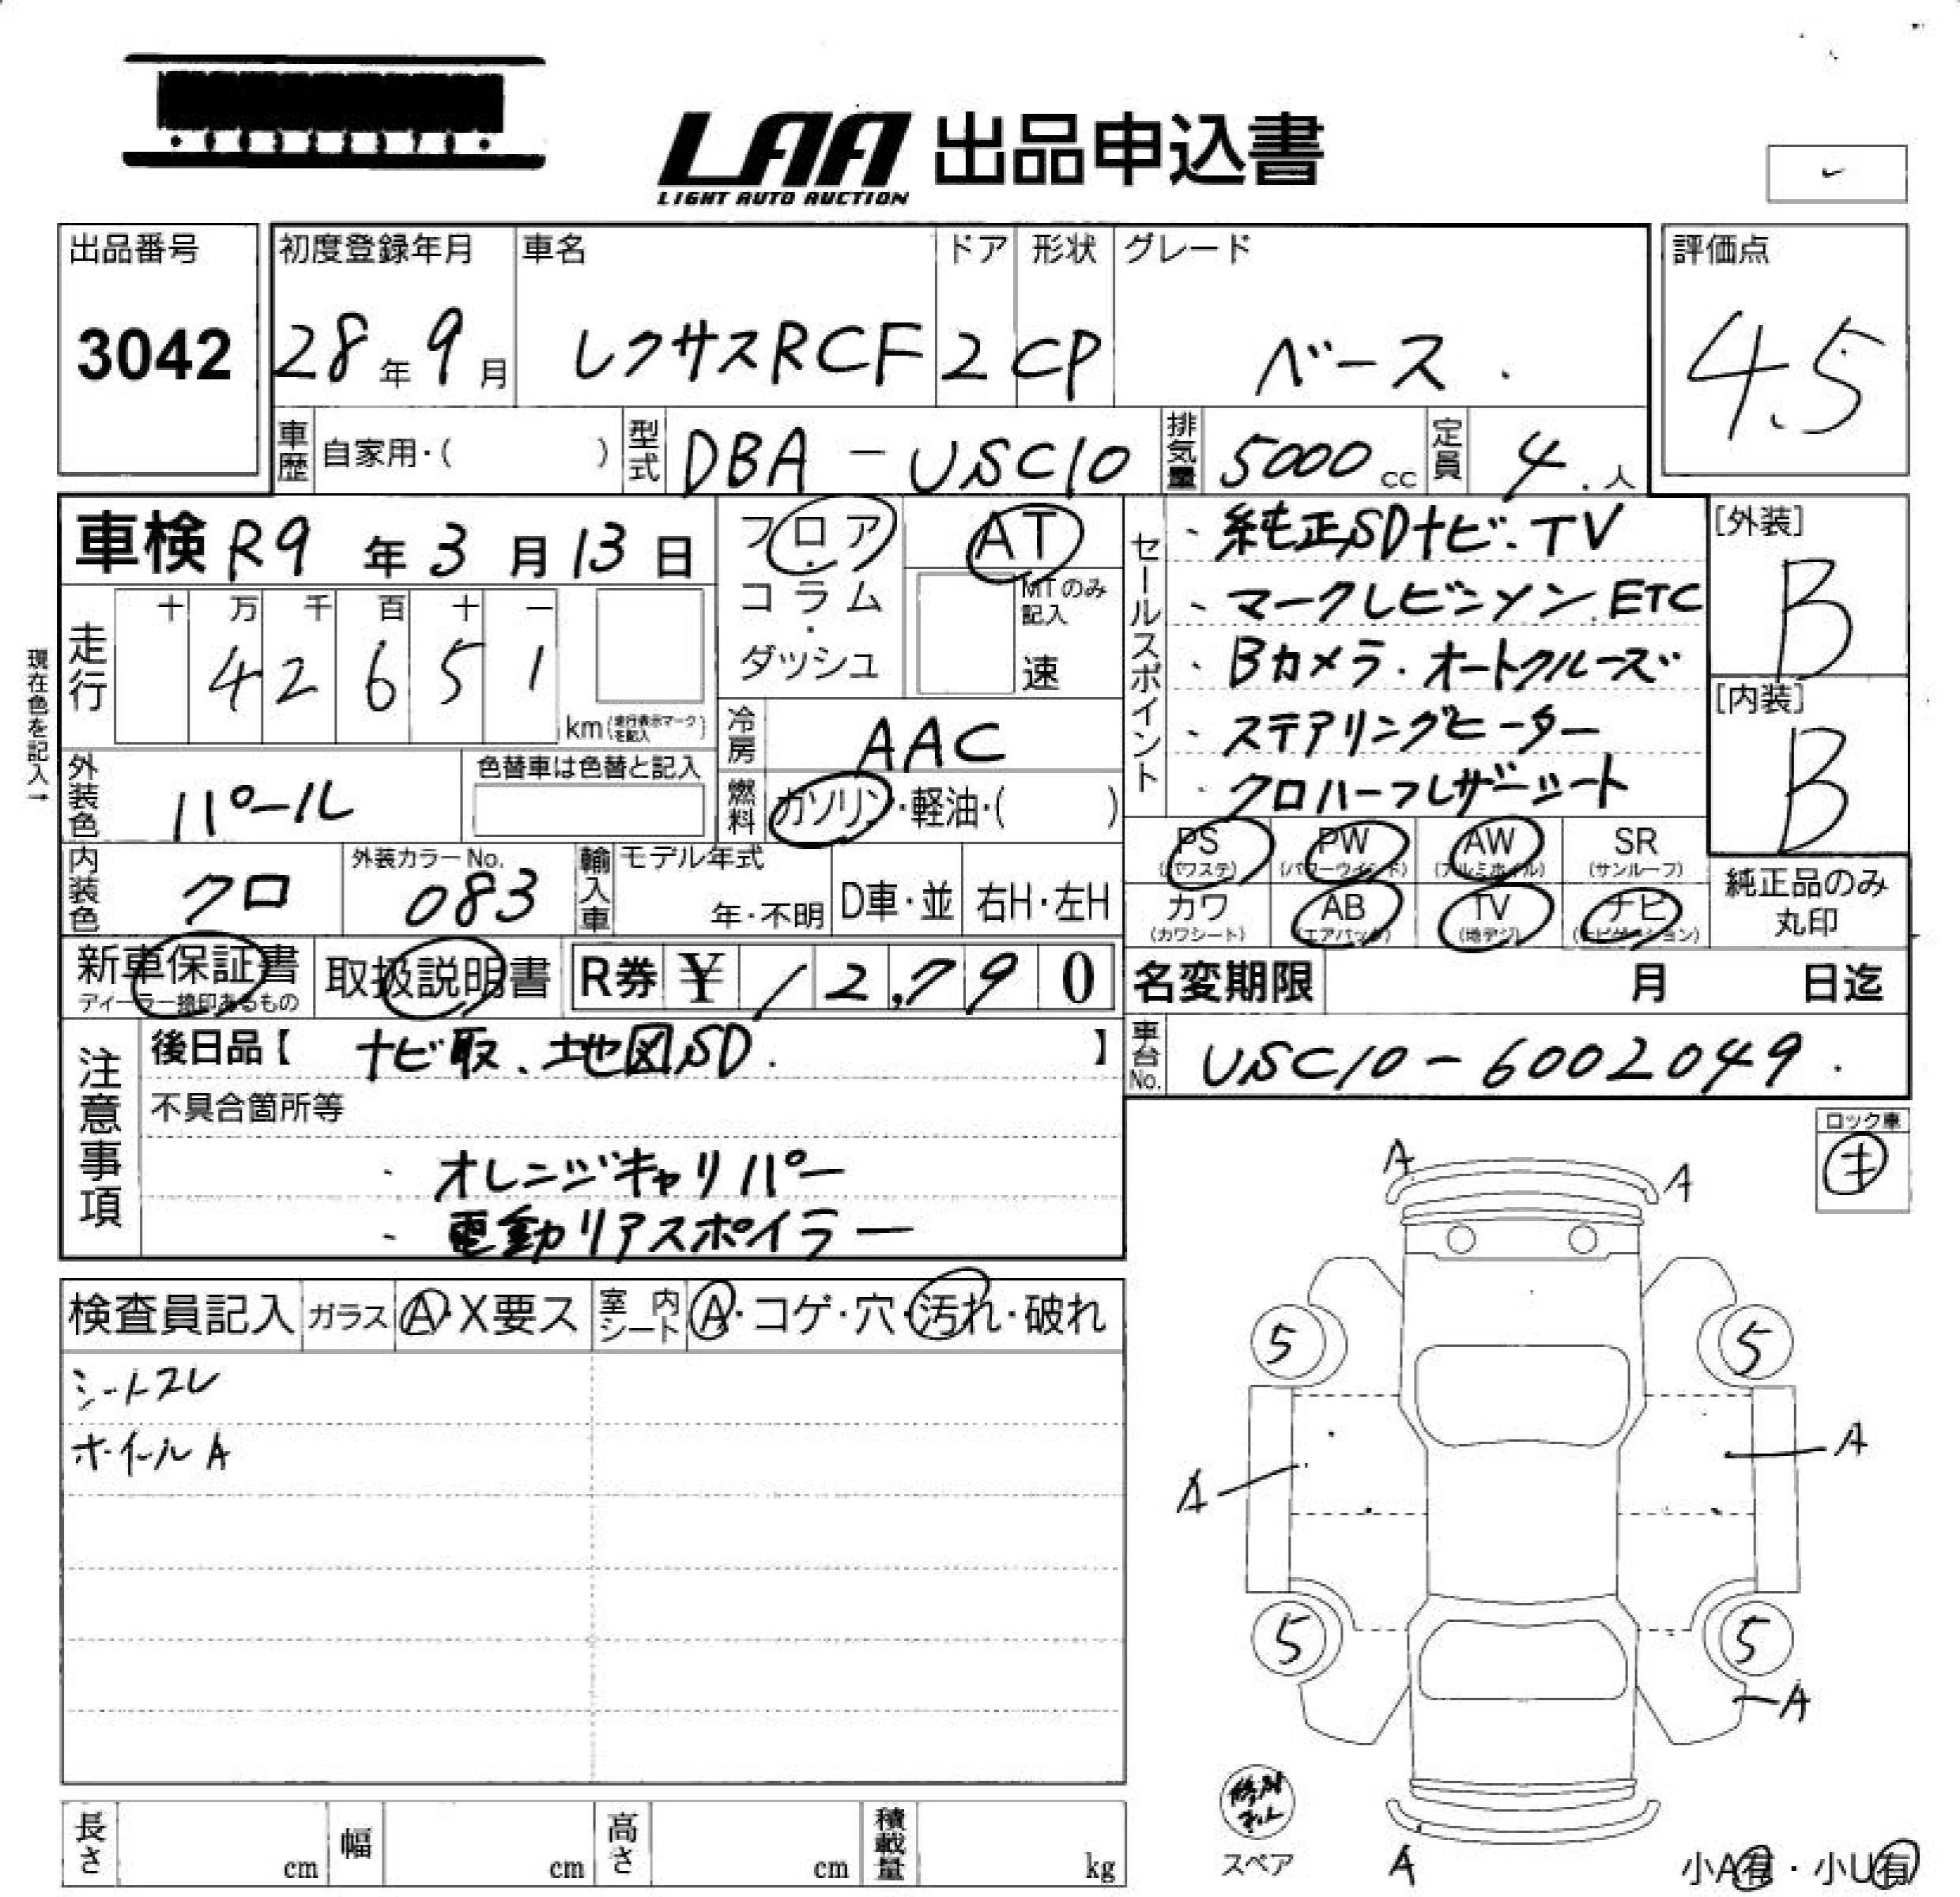 LAA 出品申込書
LIGHT AUTO AUCTION
出品番号
3042
初度登録年月
28年9月
車名
レクサスRCF
ドア
2
形状
CP
グレード
ベース.
評価点
4.5
車歴 自家用・( )
型式 DBA-USC10
排気量 5000cc
定員 4.人
車検 R9年3月13日
フロア
コラム
・
ダッシュ
AT
MTのみ記入
速
走行
十万千百十一
42651
km(走行表示マークを記入)
現在色を記入→
冷房 AAC
燃料 ガソリン・軽油・( )
外装色 パール
色替車は色替と記入
内装色 クロ
外装カラーNo.
083
輸入車 モデル年式
年・不明 D車・並 右H・左H
新車保証書
ディーラー捺印あるもの
取扱説明書
R券 ¥ 12,790
セールスポイント
・純正SDナビ.TV
・マークレビンソン.ETC
・Bカメラ.オートクルーズ
・ステアリングヒーター
・クロハーフレザーシート
[外装]
B
[内装]
B
PS (パワステ)
PW (パワーウインド)
AW (アルミホイル)
SR (サンルーフ)
カワ (カワシート)
AB (エアバック)
TV (地デジ)
ナビ (ナビゲーション)
純正品のみ
丸印
名変期限 月 日迄
車台No. USC10-6002049.
注意事項
後日品【 ナビ取、地図SD. 】
不具合箇所等
・オレンジキャリパー
・電動リアスポイラー
ロック車
キ
検査員記入 ガラス A・X要ス 室内シート A・コゲ・穴・汚れ・破れ
シートスレ
ホイールA
A
A
5
5
A
A
5
5
A
A
スペア
小A有・小U有
長さ cm 幅 cm 高さ cm 積載量 kg